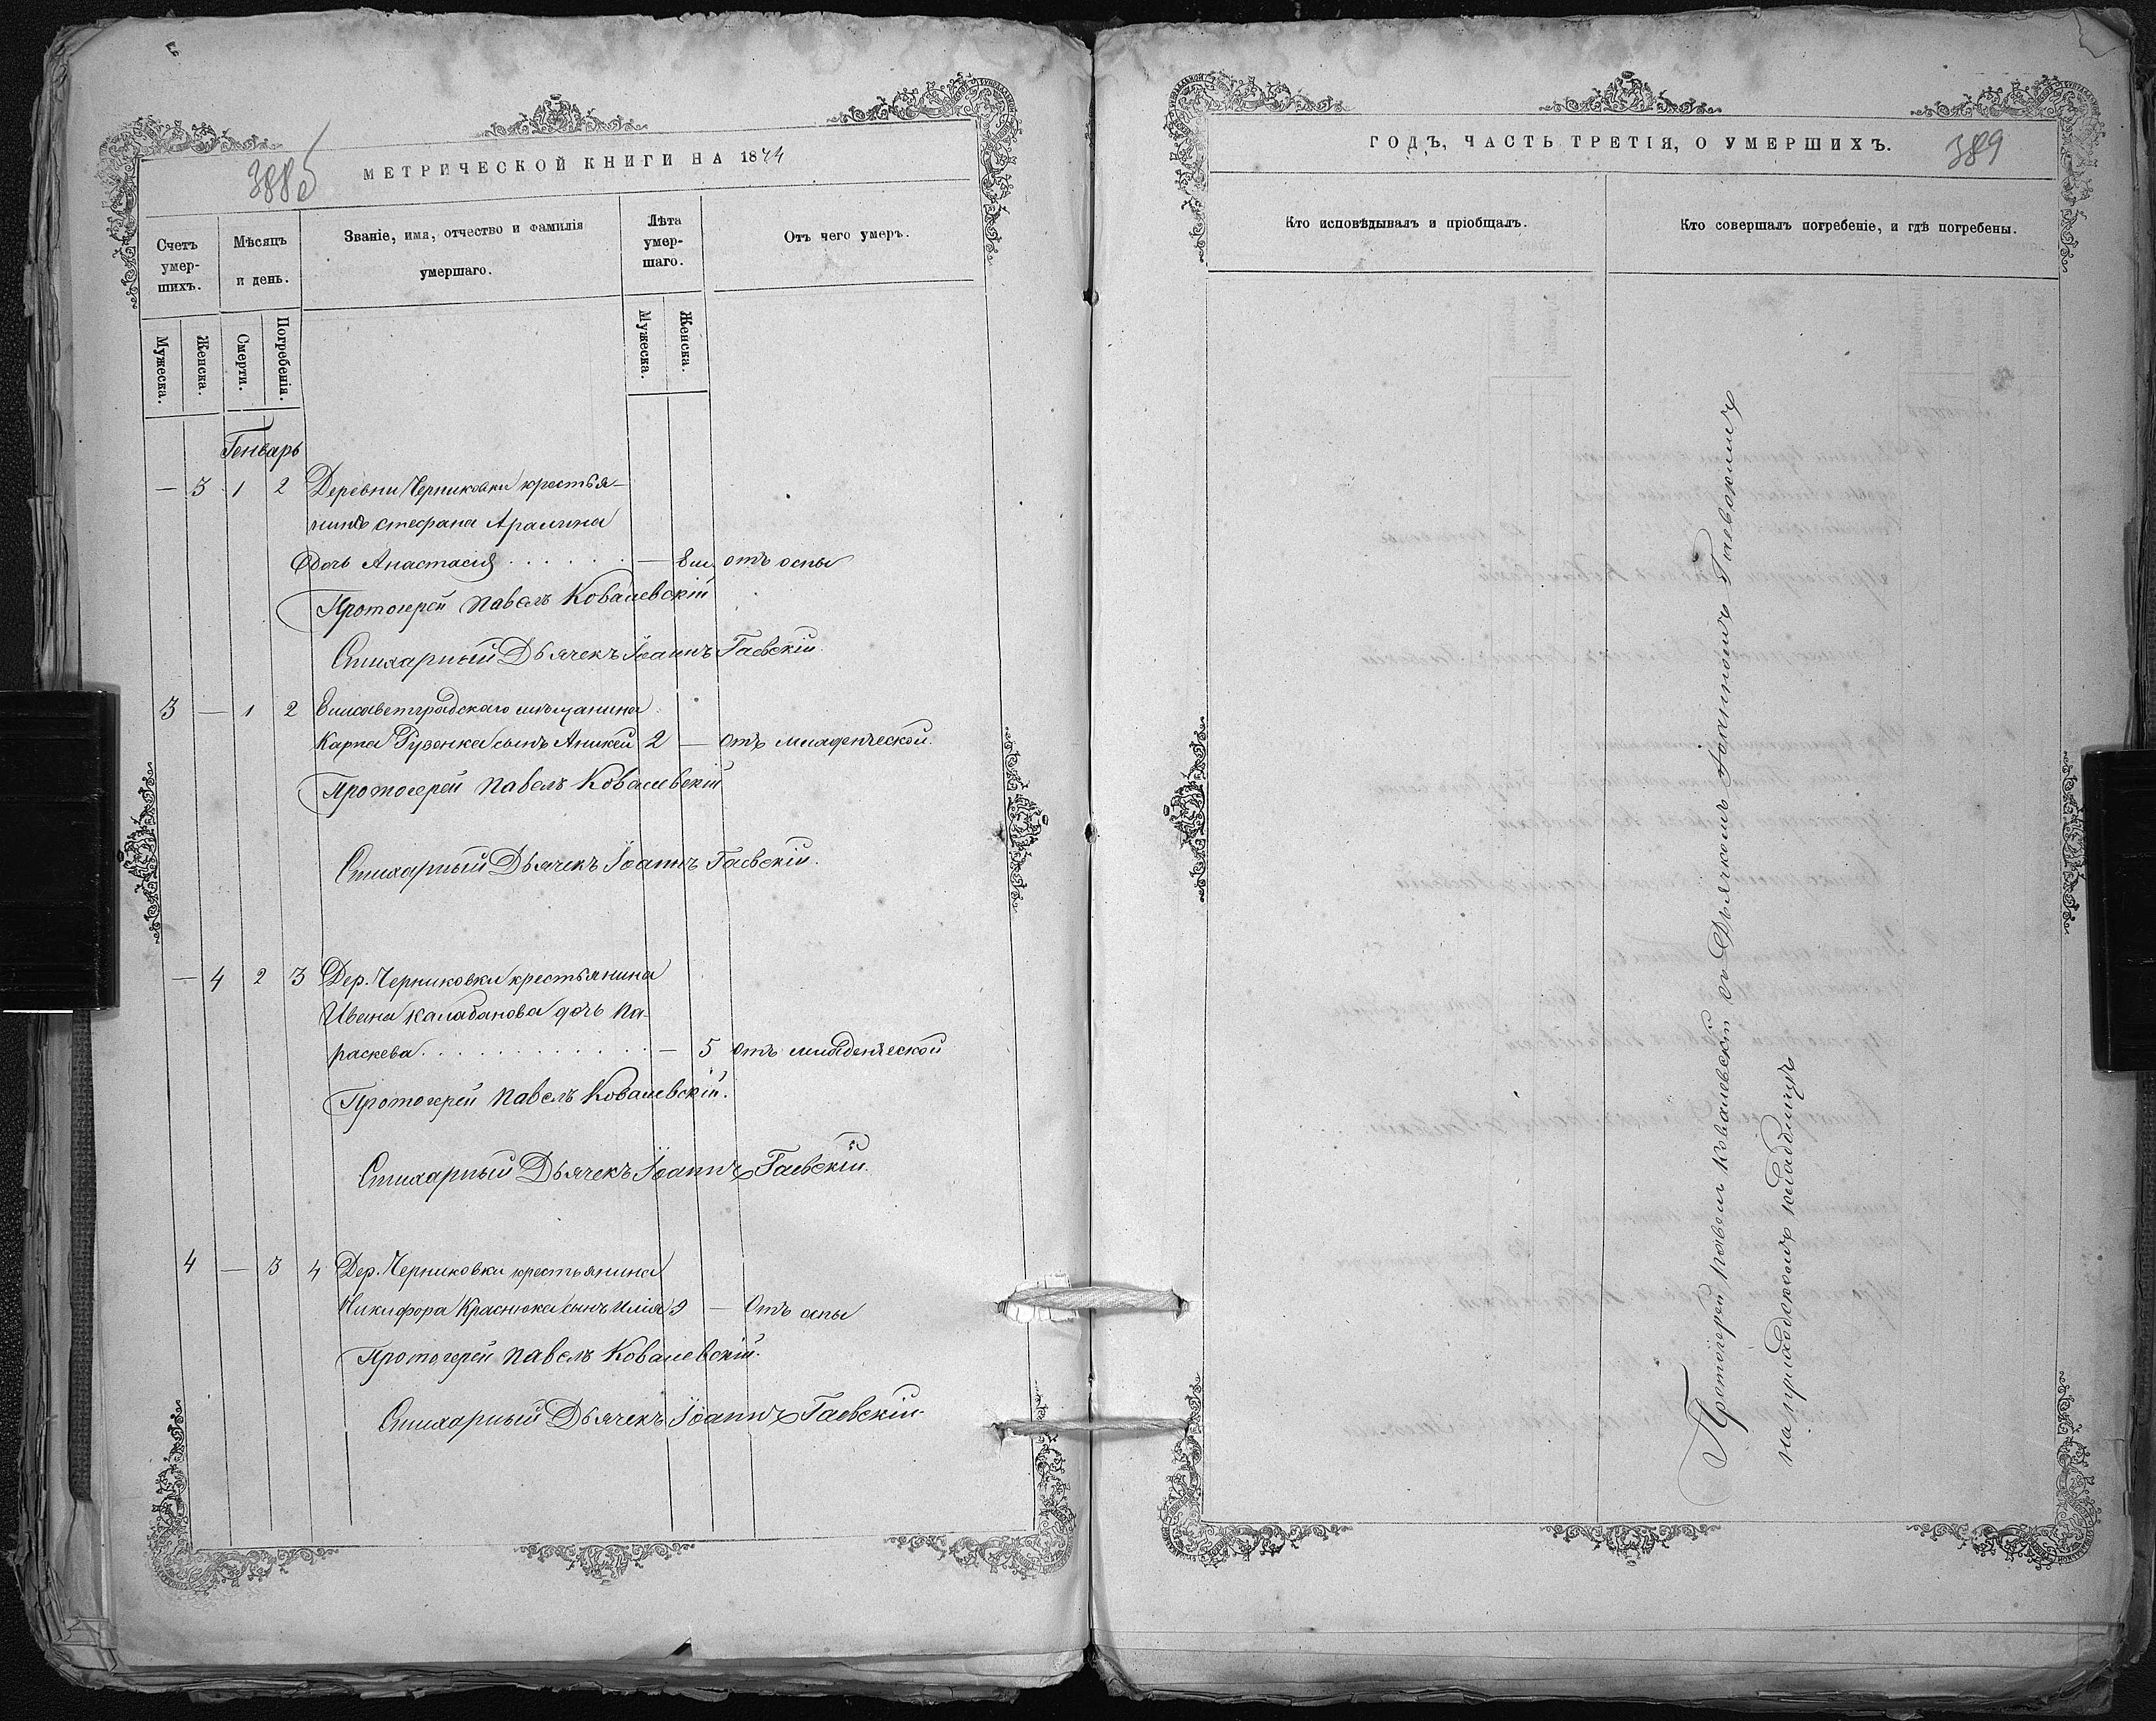 388б
МЕТРИЧЕСКОЙ КНИГИ НА 1874
Счетъ умер-шихъ.
Мѣсяцъ и день.
Званіе, имя, отчество и фамилія умершаго.
Лѣта умер-шаго.
Отъ чего умеръ.
Мужеска.
Женска.
Смерти.
Погребенія.
Мужеска.
Женска.
Генварь
— 3 1 2 Деревни Черниковки крестья-
нина Стефана Арамина
дочь Анастасія . . . . . . — 8 м. отъ оспы
Протоіерей Павелъ Ковалевскій
Стихарный Дьячекъ Іоаннъ Гаевскій.
3 — 1 2 Елисаветградскаго мѣщанина
Карпа Гузенка сынъ Аникей 2 — Отъ младенческой.
Протоіерей Павелъ Ковалевскій
Стихарный Дьячекъ Іоаннъ Гаевскій.
— 4 2 3 Дер. Черниковки крестьянина
Ивана Калабанова дочь Па-
раскева . . . . . . . . . . . . — 5 Отъ младенческой
Протоіерей Павелъ Ковалевскій.
Стихарный Дьячекъ Іоаннъ Гаевскій.
4 — 3 4 Дер. Черниковки крестьянина
Никифора Краснюка сынъ Илія 9 — Отъ оспы
Протоіерей Павелъ Ковалевскій.
Стихарный Дьячекъ Іоаннъ Гаевскій.
389
ГОДЪ, ЧАСТЬ ТРЕТІЯ, О УМЕРШИХЪ.
Кто исповѣдывалъ и пріобщалъ.
Кто совершалъ погребеніе, и гдѣ погребены.
Протоіерей Павелъ Ковалевскій съ Дьячкомъ Іоанномъ Гаевскимъ
на градскомъ кладбищѣ